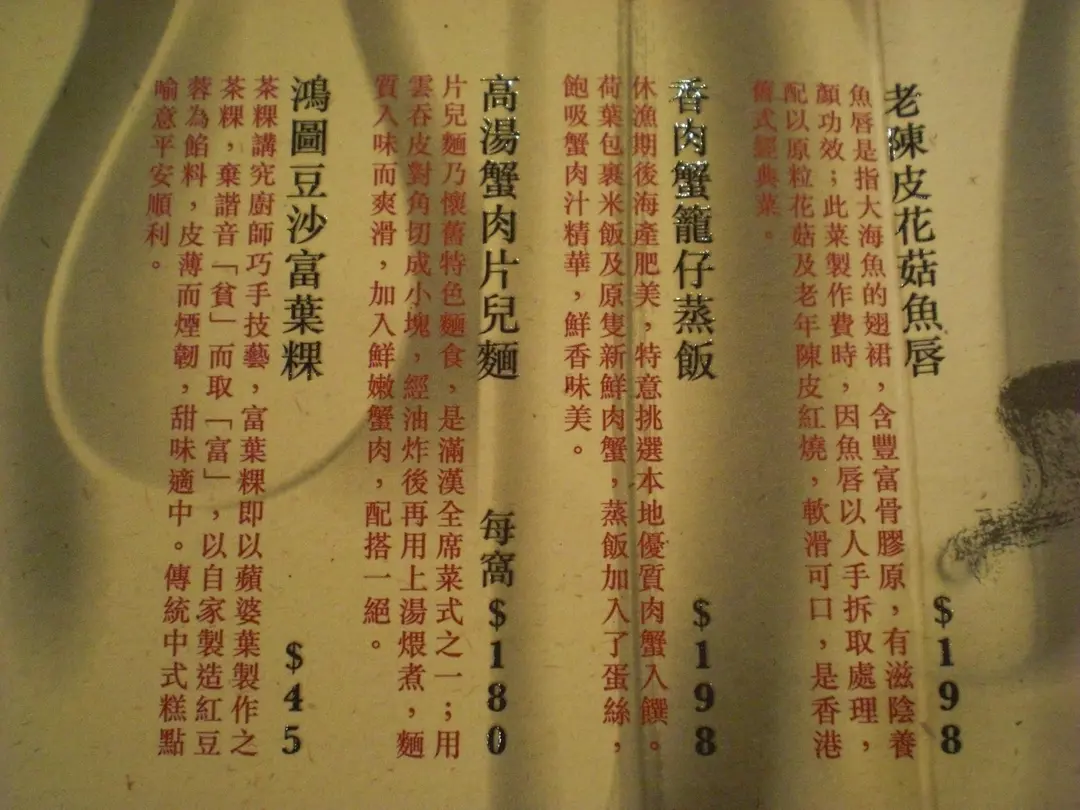 老陳皮花菇魚唇 $198
魚唇是指大海魚的翅裙，含豐富骨膠原，有滋陰養
顏功效；此菜製作費時，因魚唇以人手拆取處理，
配以原粒花菇及老年陳皮紅燒，軟滑可口，是香港
舊式經典菜。
香肉蟹籠仔蒸飯 $198
休漁期後海產肥美，特意挑選本地優質肉蟹入饌。
荷葉包裹米飯及原隻新鮮肉蟹，蒸飯加入了蛋絲，
飽吸蟹肉汁精華，鮮香味美。
高湯蟹肉片兒麵 每窩$180
片兒麵乃懷舊特色麵食，是滿漢全席菜式之一；用
雲吞皮對角切成小塊，經油炸後再用上湯煨煮，麵
質入味而爽滑，加入鮮嫩蟹肉，配搭一絕。
鴻圖豆沙富葉粿 $45
茶粿講究廚師巧手技藝，富葉粿即以蘋婆葉製作之
茶粿，棄諧音「貧」而取「富」，以自家製造紅豆
蓉為餡料，皮薄而煙韌，甜味適中。傳統中式糕點
喻意平安順利。